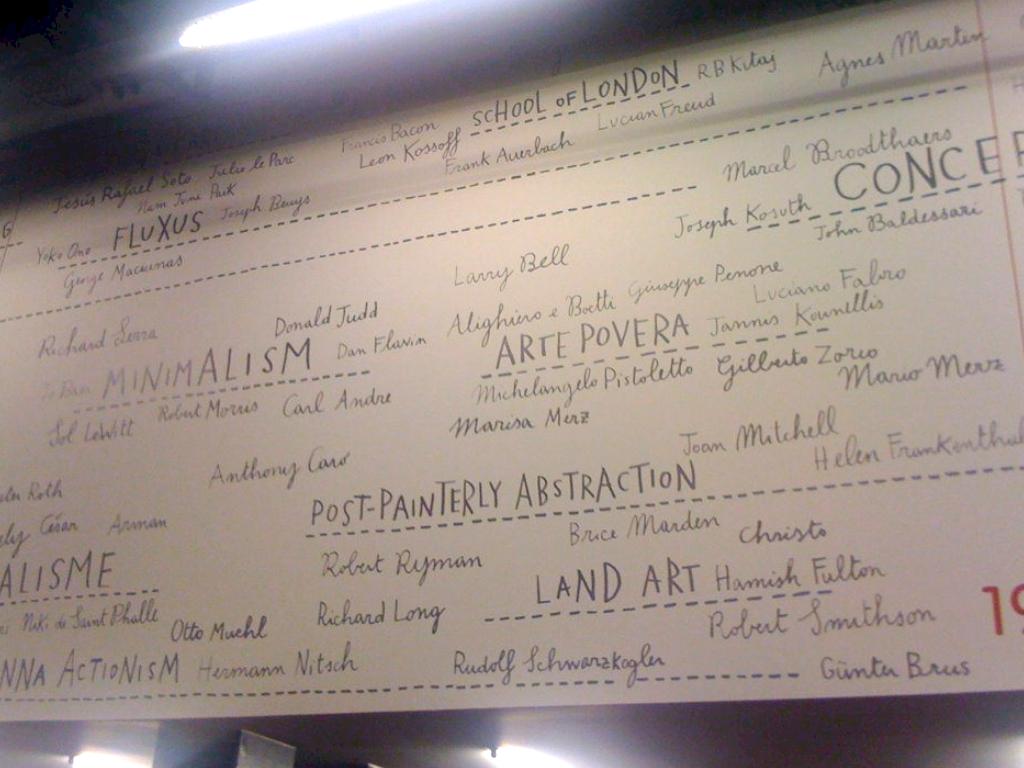 Agnes Marten
SCHOOL OF LONDON
R B Kitaj
Francis Bacon
Leon Kossoff
Lucian Freud
Frank Auerbach
Jesús Rafael Soto
Julio le Parc
Nam June Paik
Marcel Broodthaers
CONCE
Yoko Ono
FLUXUS
Joseph Beuys
Joseph Kosuth
John Baldessari
George Maciunas
Larry Bell
Richard Serra
Donald Judd
Alighiero e Boetti
Giuseppe Penone
Luciano Fabro
MINIMALISM
Dan Flavin
ARTE POVERA
Jannis Kounellis
Sol LeWitt
Robert Morris
Carl Andre
Michelangelo Pistoletto
Gilberto Zorio
Mario Merz
Marisa Merz
Anthony Caro
Joan Mitchell
Helen Frankenthal
Roth
POST-PAINTERLY ABSTRACTION
ely César
Arman
Robert Ryman
Brice Marden
Christo
ALISME
LAND ART
Hamish Fulton
Niki de Saint Phalle
Otto Muehl
Richard Long
Robert Smithson
19
NNA ACTIONISM
Hermann Nitsch
Rudolf Schwarzkogler
Günter Brus